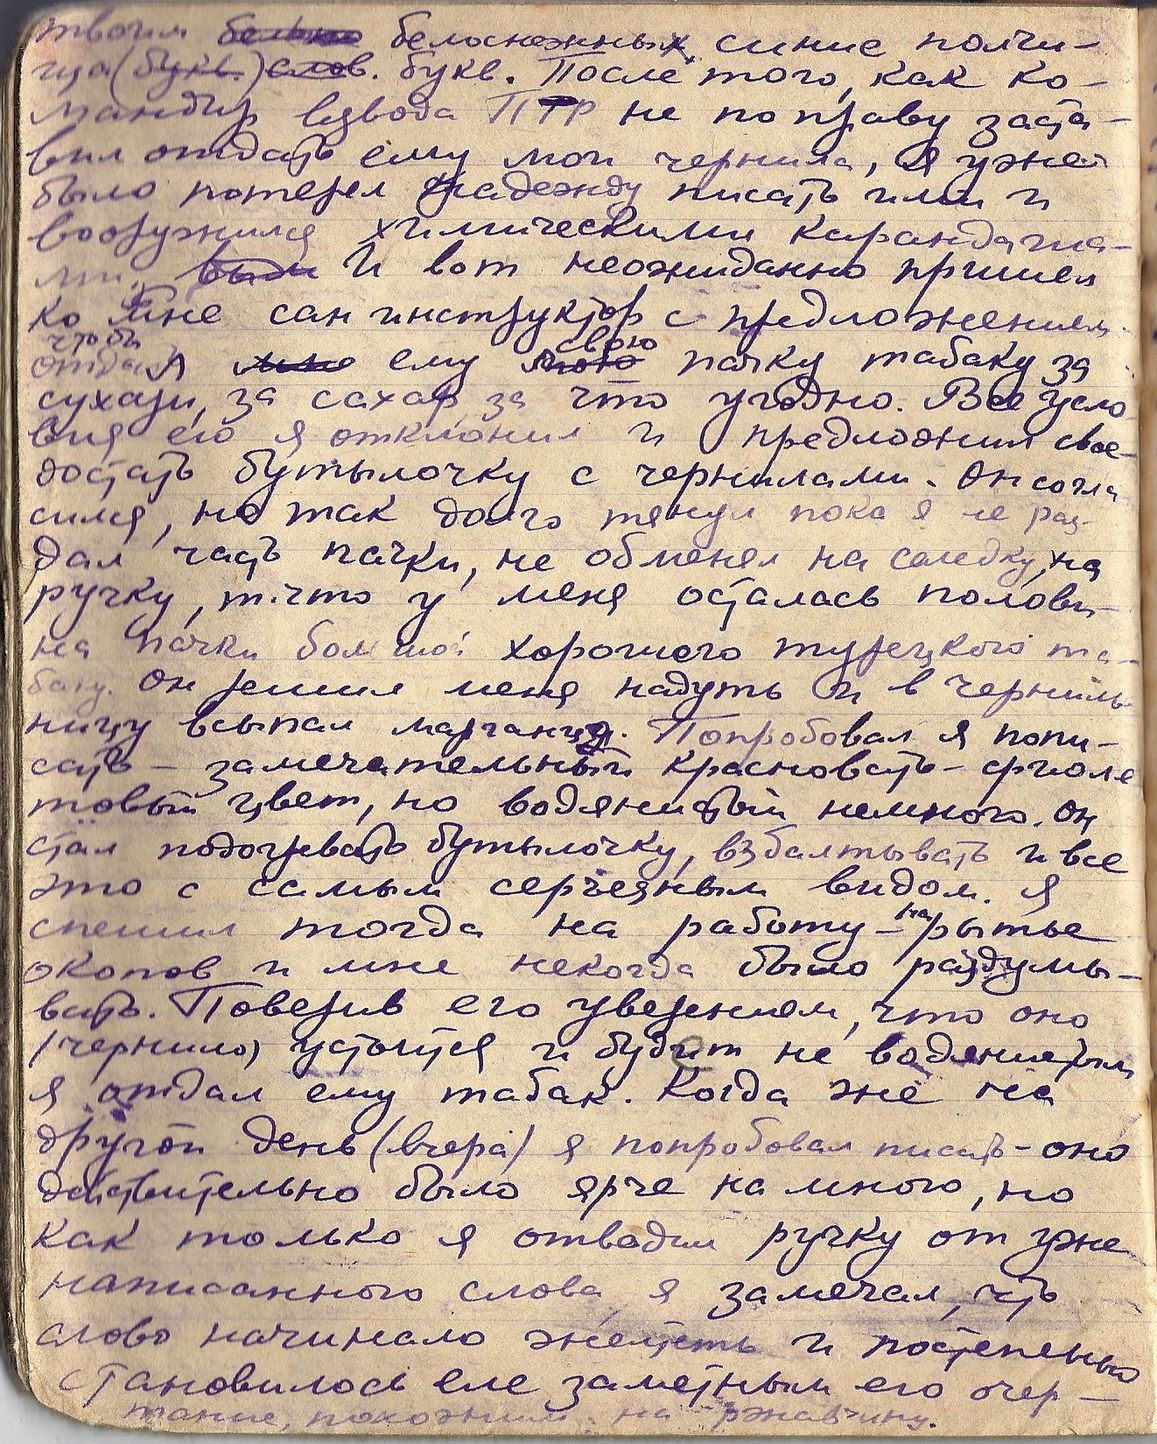 твоим белоснежных синие полчи-
ща (букв.) букв. После того, как ко-
мандир взвода ПТР не по праву заста-
вил отдать ему мои чернила, я уже
было потерял надежду писать ими и
вооружился химическими карандаша-
ми. И вот неожиданно пришел
ко мне санинструктор с предложением
чтобы свою
отдал ему пачку табаку за
сухари, за сахар, за что угодно. Все усло
вия его я отклонил и предложил свое-
достать бутылочку с чернилами. Он согла
сился, но так долго тянул пока я не раз-
дал часть пачки, не обменял на селедку, на
ручку, т.что у меня осталась полови-
на пачки большой хорошего турецкого та-
баку. Он решил меня надуть и в черниль-
ницу всыпал марганцу. Попробовал я попи-
сать – замечательный красновать-фиоле
товый цвет, но водянистый немного. Он
стал подогревать бутылочку, взбалтывать и все
это с самым серьезным видом. Я
спешил тогда на работу – на рытье
окопов и мне некогда было раздумы-
вать. Поверив его уверениям, что оно
(чернило) устоится и будет не водянистым
я отдал ему табак. Когда же на
другой день (вчера) я попробовал писать – оно
действительно было ярче на много, но
как только я отводил ручку от уже
написанного слова, я замечал, что
слово начинало желтеть и постепенно
становилось еле заметным его очер-
тание, похожим на ржавчину.